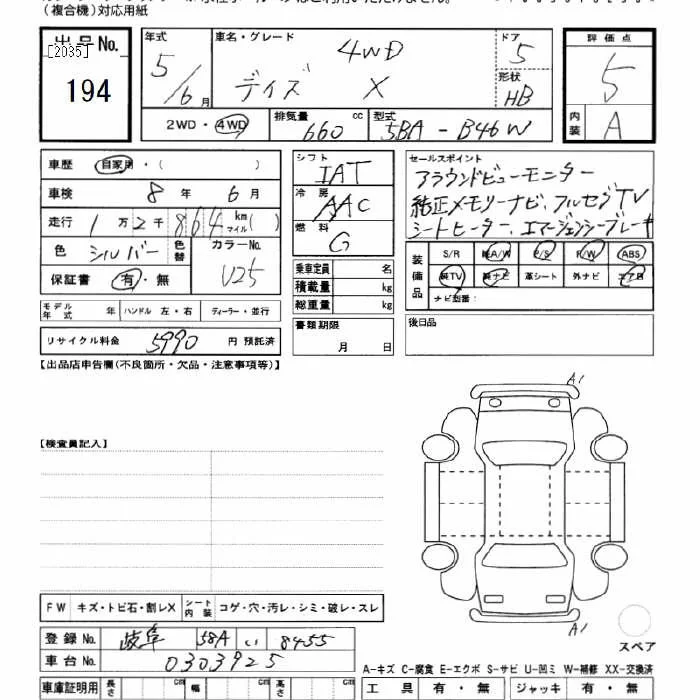 （複合機）対応用紙
出品No.
[2035]
194
年式
5/6月
車名・グレード
4WD
デイズ X
ドア
5
形状
HB
2WD・4WD
排気量
660 cc
型式
5BA-B46W
評価点
5
内装
A
車歴 自家用・( )
車検 8年 6月
走行 1万2千864 km マイル( )
色 シルバー 色替
カラーNo.
保証書 有・無
V25
モデル年式 年 ハンドル 左・右 ディーラー・並行
リサイクル料金 5990 円 預託済
シフト
IAT
冷房
AAC
燃料
G
乗車定員 名
積載量 kg
総重量 kg
書類期限
月 日
セールスポイント
アラウンドビューモニター
純正メモリーナビ、フルセグTV
シートヒーター、エマージェンシーブレーキ
装備品
S/R 純A/W P/S P/W ABS
純TV 純ナビ 革シート 外ナビ エアB
ナビ型番：
後日品
【出品店申告欄(不良箇所・欠品・注意事項等)】
【検査員記入】
A1
A1
スペア
FW キズ・トビ石・割レX シート内装 コゲ・穴・汚レ・シミ・破レ・スレ
登録No. 岐阜 58A い 8455
車台No. 0303925
車庫証明用 長さ cm 幅 cm 高さ cm
A-キズ C-腐食 E-エクボ S-サビ U-凹ミ W-補修 XX-交換済
工具 有・無 ジャッキ 有・無